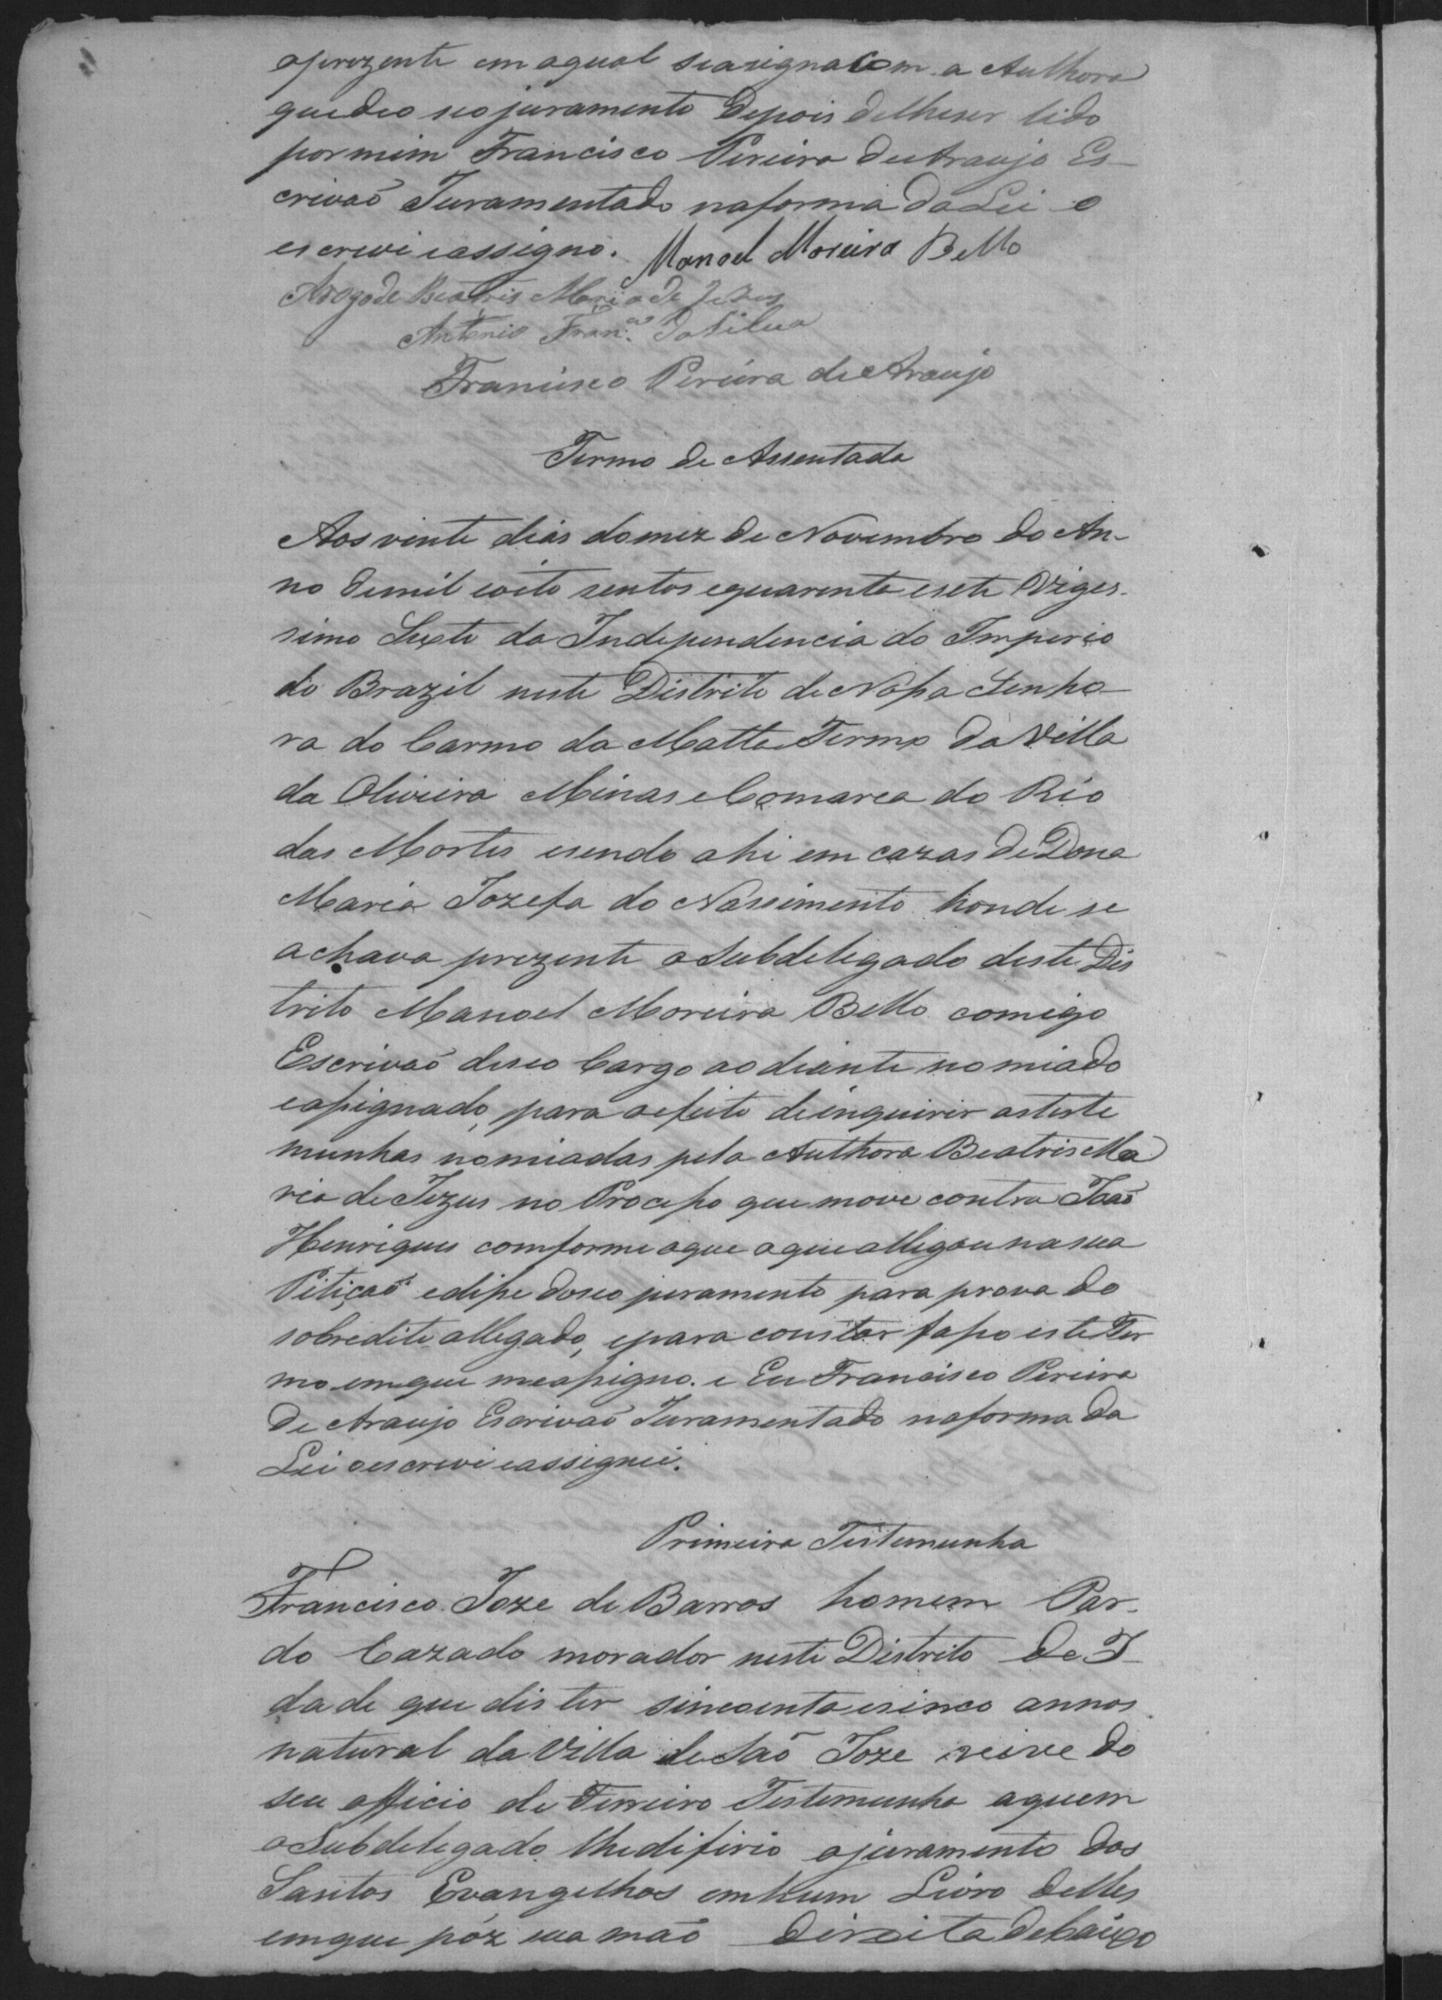 aprezente em aqual seasigna com a Authora
quedeo seo juramento depois delheser lido
por mim Francisco Pereira de Araujo Es-
crivaõ Juramentado naforma da Lei o
escrevi eassigno. Manoel Moreira Bello
Arogo de Beatris Maria de Jezus
Antonio Fran.co da Silva
Francisco Pereira de Araujo
Termo de Assentada
Aos vinte dias domez de Novembro do An-
no demil eoito sentos equarenta esete Viges-
simo Sexto da Independencia do Imperio
do Brazil neste Distrito de Nossa Senho-
ra do Carmo da Matta Termo da Villa
da Oliveira Minas e Comarca do Rio
das Mortes esendo ahi em cazas de Dona
Maria Jozefa do Nassimento honde se
achava prezente o Subdelegado deste Dis
trito Manoel Moreira Bello comigo
Escrivaõ deseo Cargo ao diante nomiado
eassignado, para oefeito deinquirir asteste
munhas nomiadas pela Authora Beatris Ma
ria de Jezus no Processo que move contra Joaõ
Henriques comforme oque aque allegou nasua
Petiçaõ edisse doseo juramento para prova do
sobredito allegado, epara constar fasso este Ter
mo emque measigno. e Eu Francisco Pereira
de Araujo Escrivaõ Juramentado naforma da
Lei oescrevi eassignei.
Primeira Testemunha
Francisco Joze de Barros homem Par-
do Cazado morador neste Distrito de I
dade que dis ter sincoenta esinco annos
natural da Villa de Saõ Joze veive do
seu officio de Ferreiro Testemunha aquem
o Subdelegado lhedifirio ojuramento dos
Santos Evangelhos emhum Livro delles
emque póz sua maõ direita debaixo